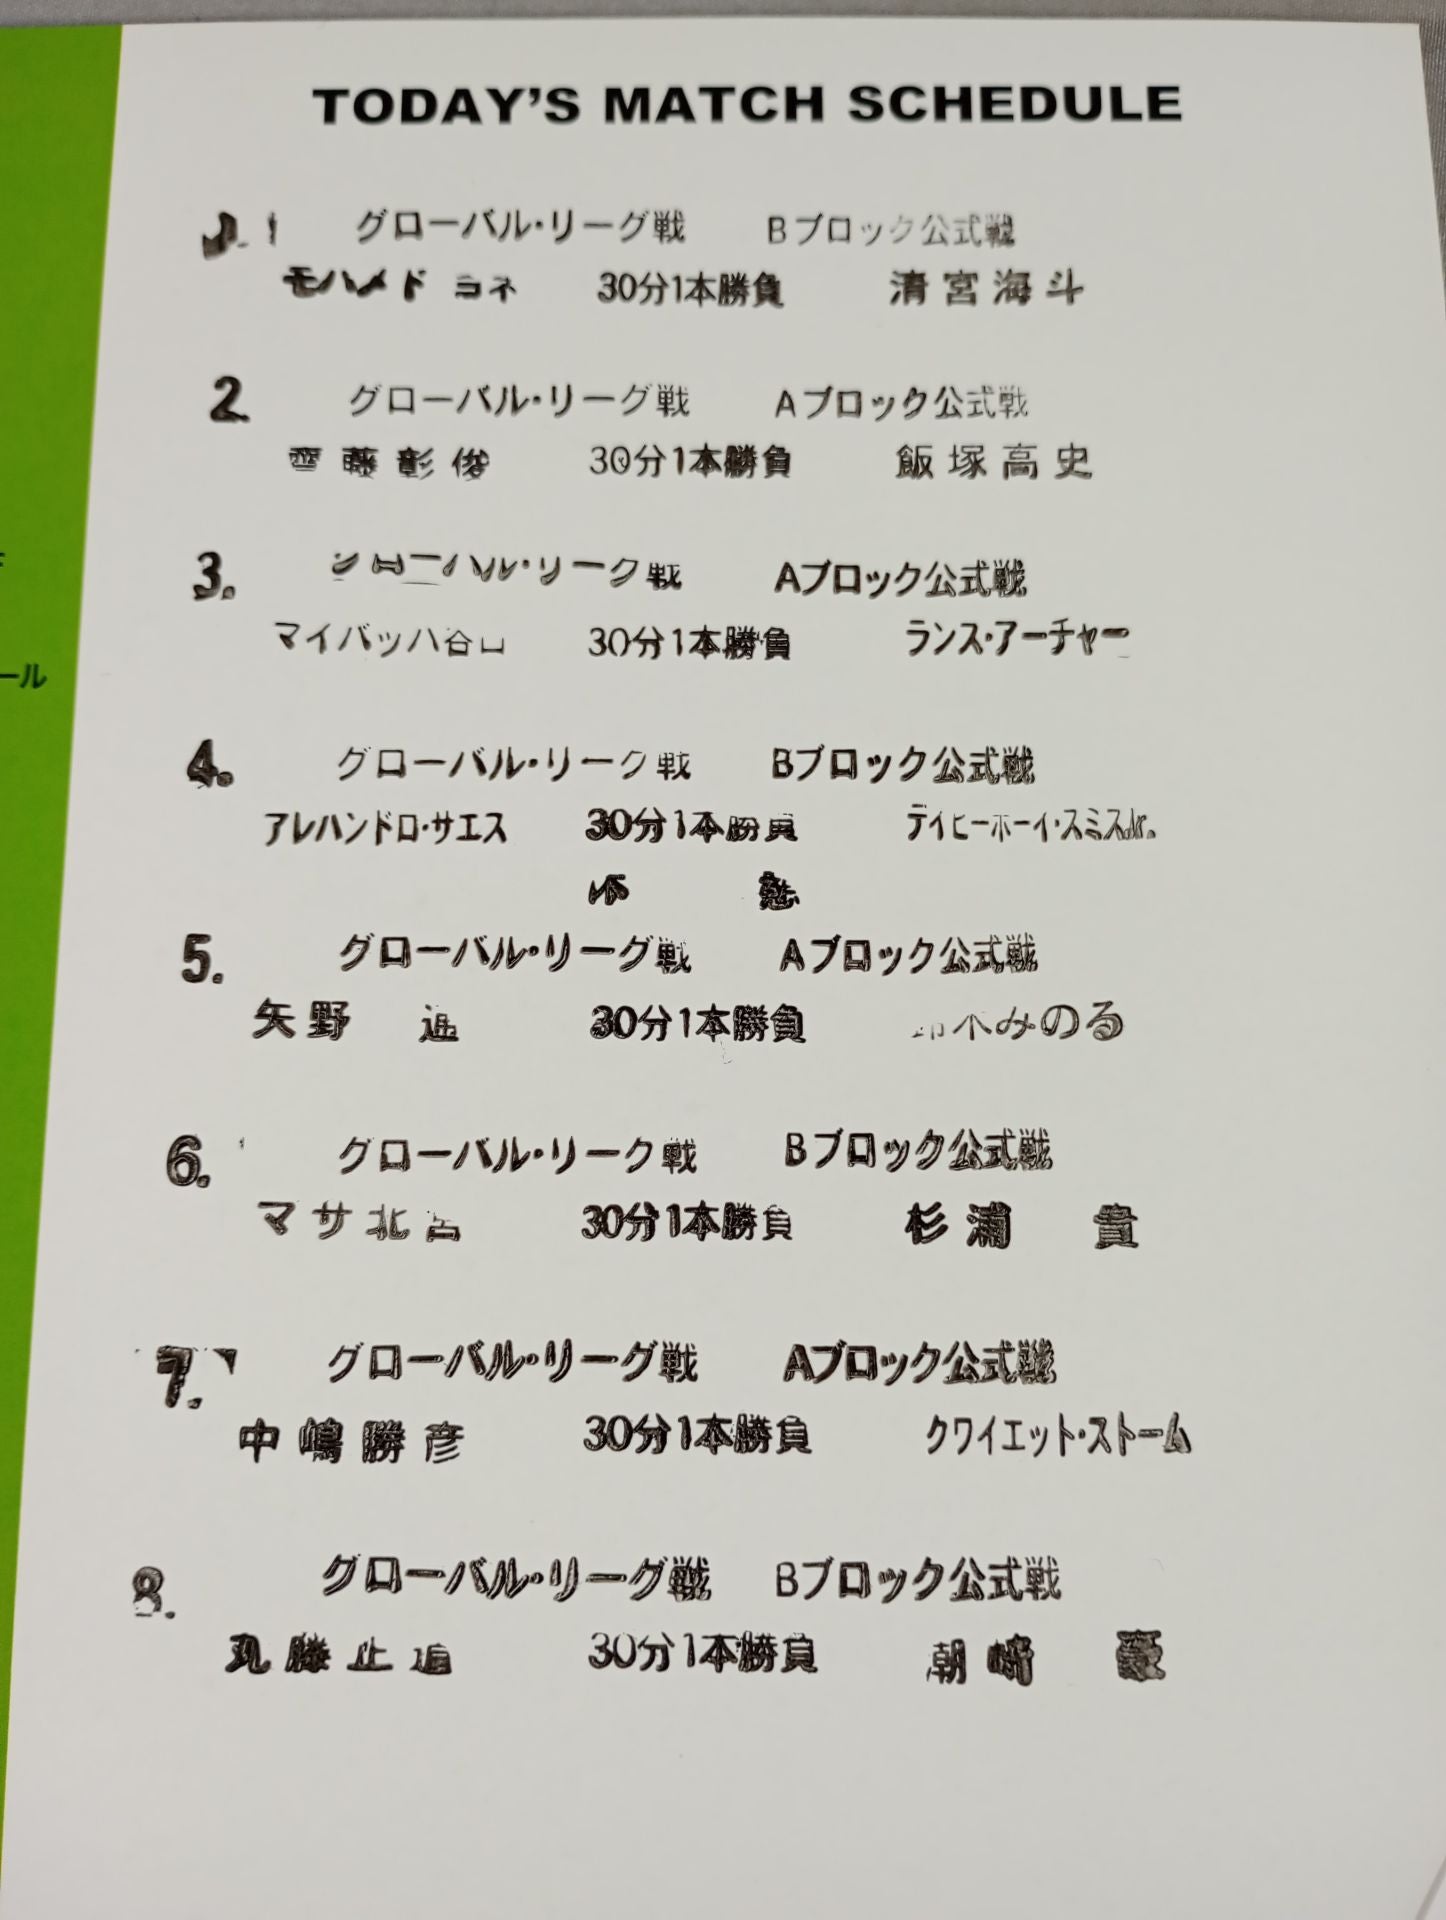 TODAY'S MATCH SCHEDULE
1.
グローバル・リーグ戦 Bブロック公式戦
モハメド ヨネ 30分1本勝負 清宮海斗
2. グローバル・リーグ戦 Aブロック公式戦
齋藤彰俊 30分1本勝負 飯塚高史
3. グローバル・リーグ戦 Aブロック公式戦
マイバッハ谷口 30分1本勝負 ランス・アーチャー
4. グローバル・リーグ戦 Bブロック公式戦
アレハンドロ・サエス 30分1本勝負 デイビーボーイ・スミスJr.
休 憩
5. グローバル・リーグ戦 Aブロック公式戦
矢野 通 30分1本勝負 鈴木みのる
6. グローバル・リーグ戦 Bブロック公式戦
マサ北宮 30分1本勝負 杉浦 貴
7. グローバル・リーグ戦 Aブロック公式戦
中嶋勝彦 30分1本勝負 クワイエット・ストーム
8. グローバル・リーグ戦 Bブロック公式戦
丸藤正道 30分1本勝負 潮﨑 豪
ール